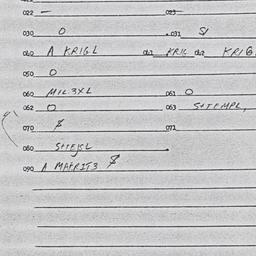 022 — 023
030 0 031 SI
040 A KRIGL 041 KRIG 042 KRIG
050 0
060 MIL3XL 061 0
062 0 063 S+TEMPL,
070 $ 071
080
090 A MAKRIT3 $